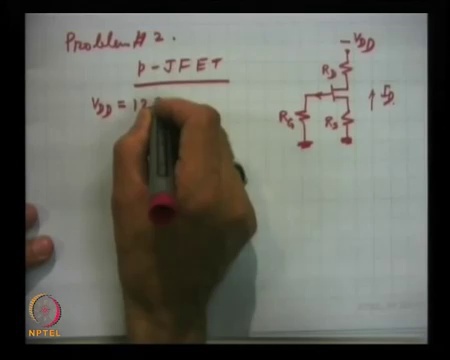 Problem # 2.
p-JFET
V_DD = 12
-V_DD
R_D
I_D
R_G
R_S
NPTEL